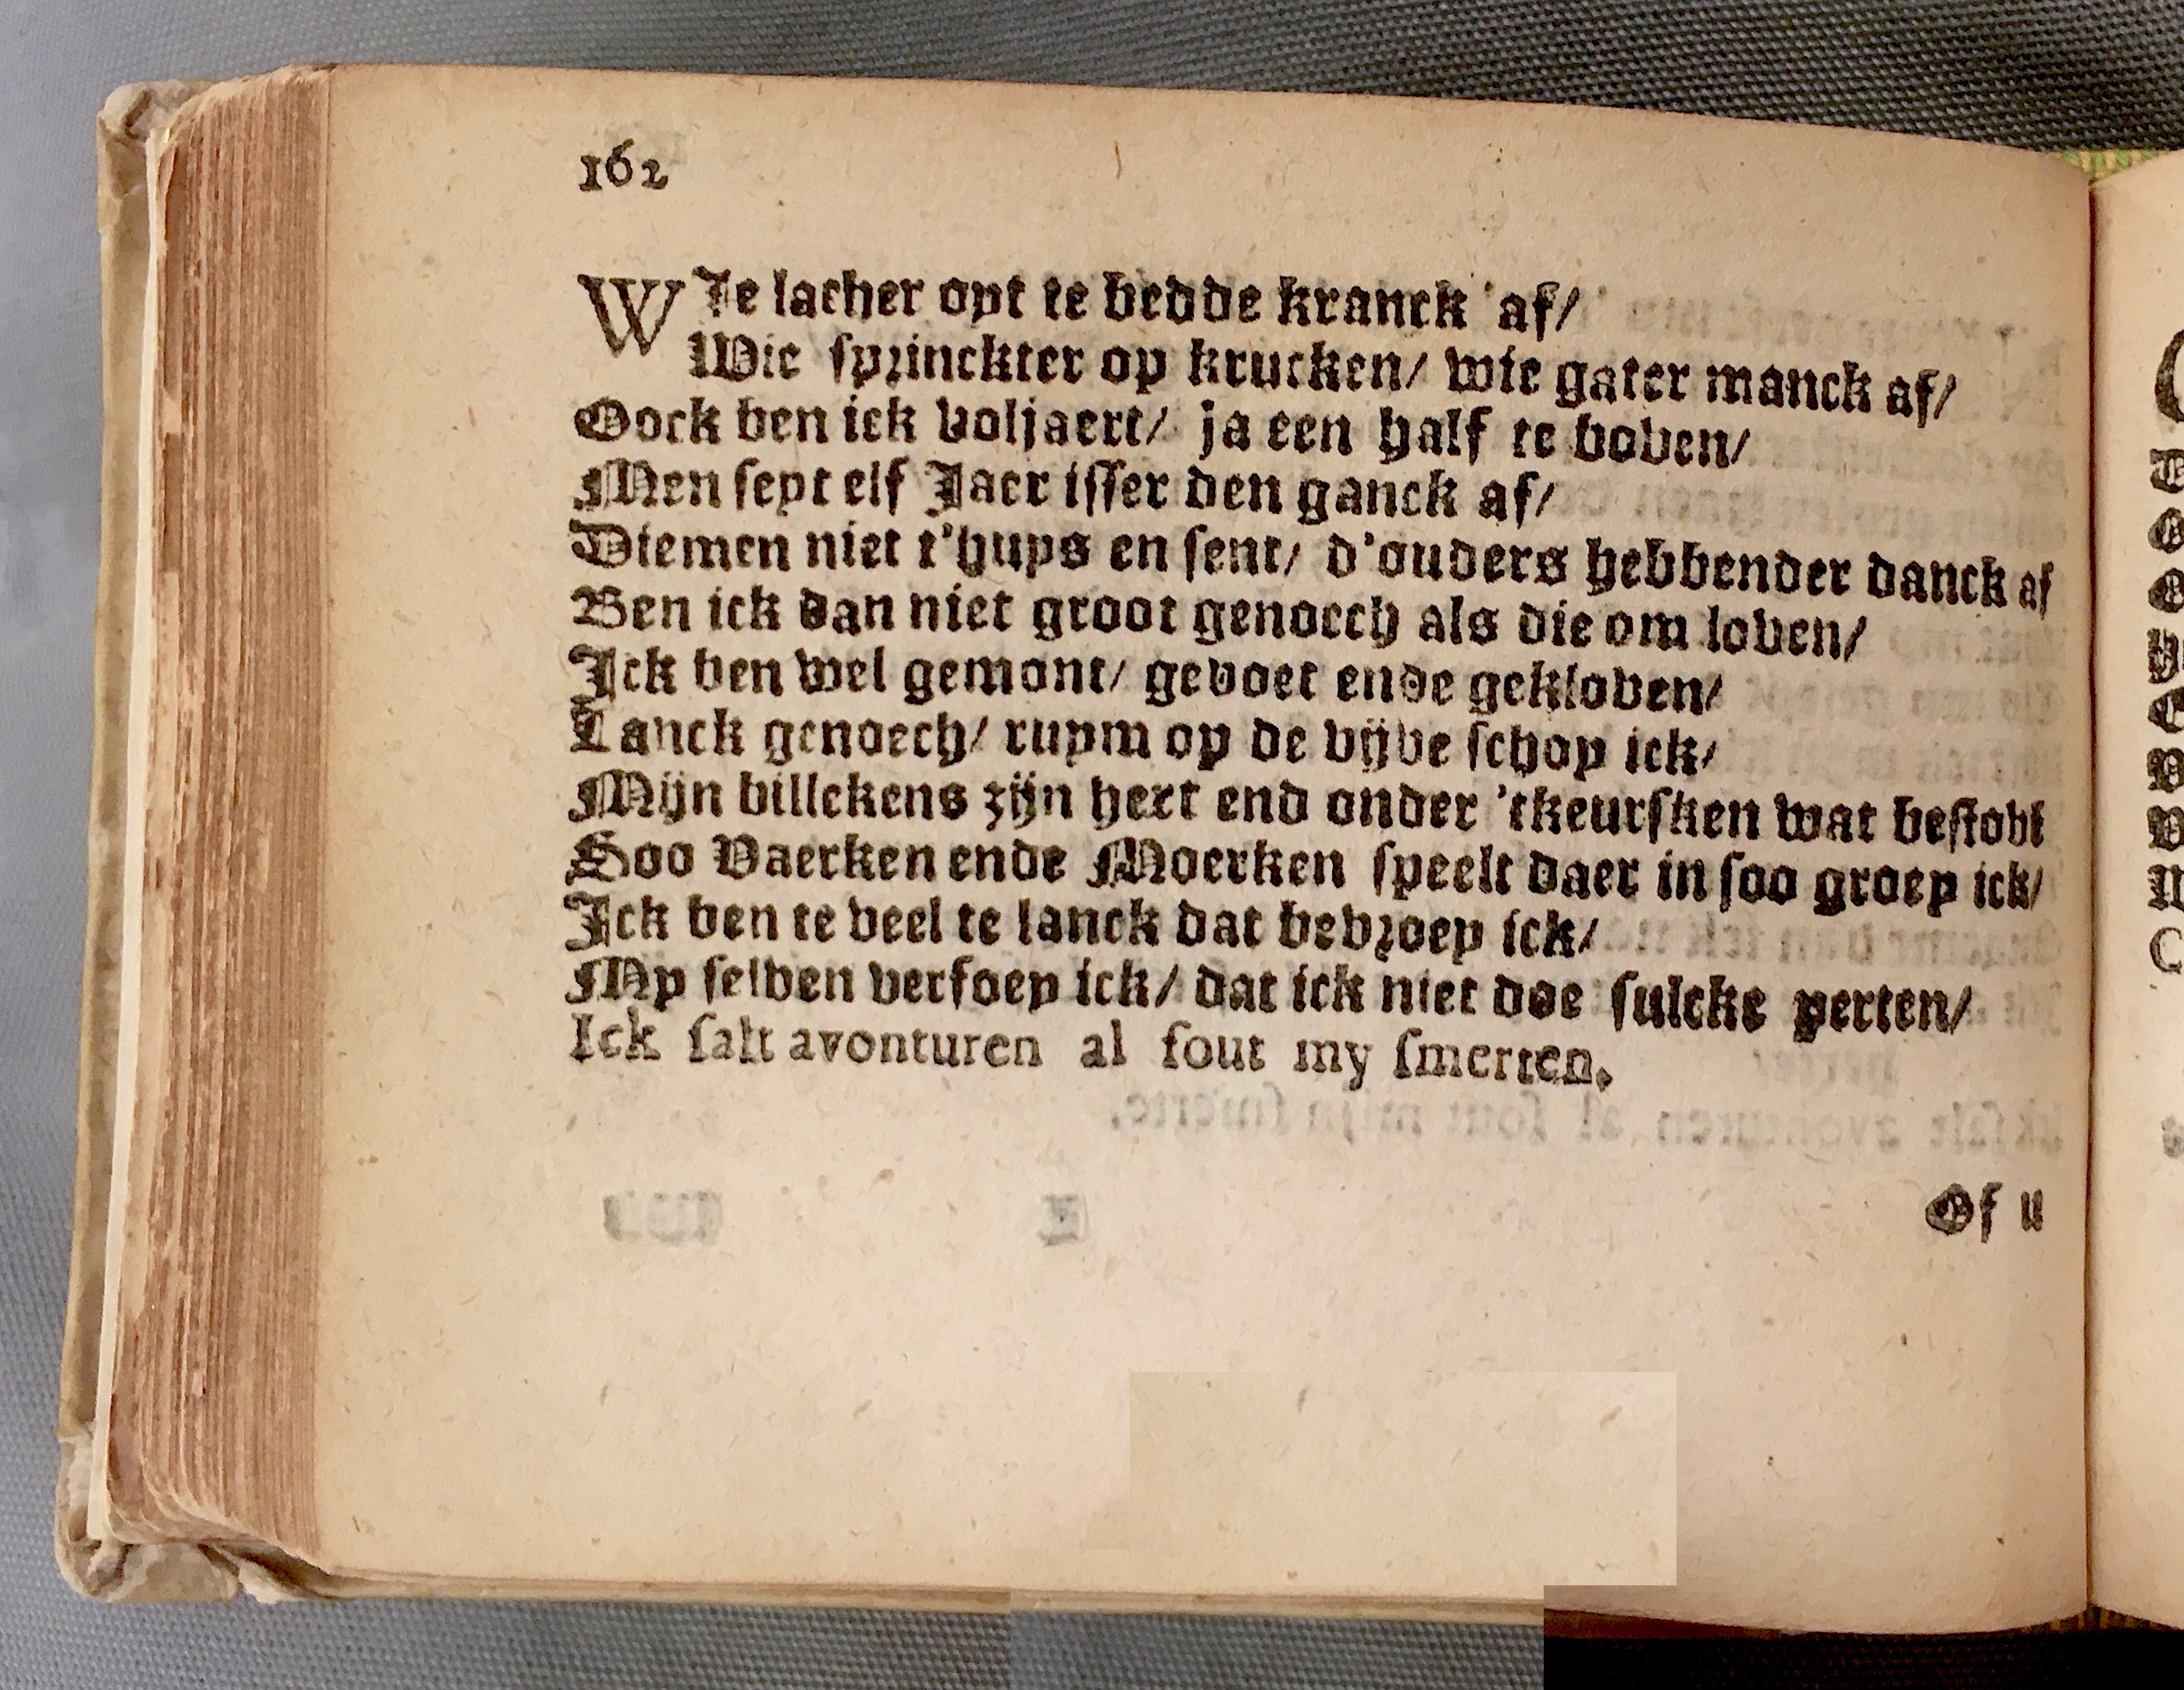 162
WIe lacher opt te bedde kranck af/
Wie sprinckter op krucken/ wie gater manck af/
Oock ben ick voljaert/ ja een half te boven/
Men seyt elf Jaer isser den ganck af/
Diemen niet t'huys en sent/ d'ouders hebbender danck af
Ben ick dan niet groot genoech als die om loven/
Ick ben wel gemont/ gevoet ende gekloven/
Lanck genoech/ ruym op de vijve schoy ick/
Mijn billekens zijn hert end onder 'tkeursken wat bestovt
Soo Vaerken ende Moerken speelt daer in soo groey ick/
Ick ben te veel te lanck dat bevroey ick/
My selven verfoey ick/ dat ick niet doe sulcke perten/
Ick salt avonturen al sout my smerten.
Of u